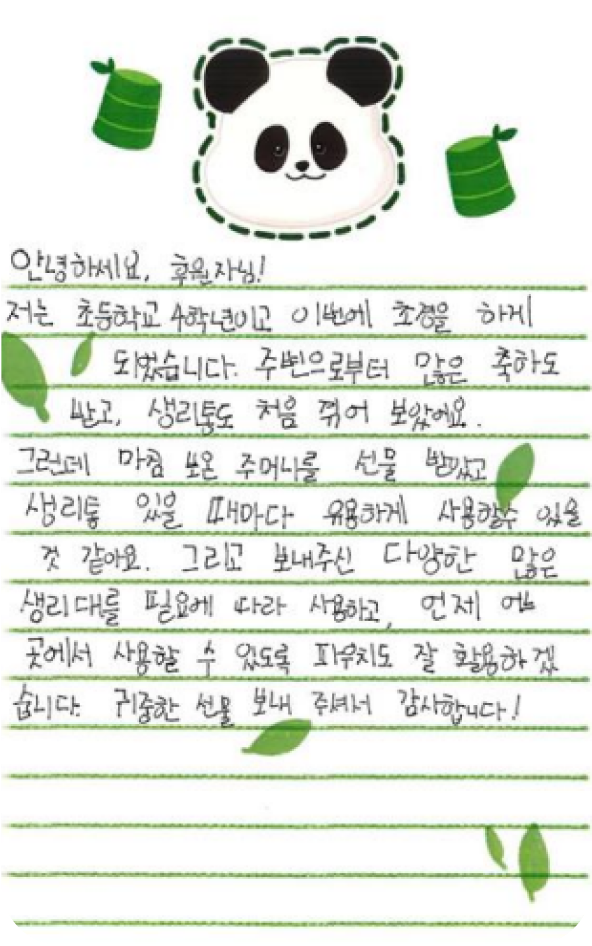 안녕하세요, 후원자님!
저는 초등학교 4학년이고 이번에 초경을 하게
되었습니다. 주변으로부터 많은 축하도
받고, 생리통도 처음 겪어 보았어요.
그런데 마침 보온 주머니를 선물 받았고
생리통 있을 때마다 유용하게 사용할수 있을
것 같아요. 그리고 보내주신 다양한 많은
생리대를 필요에 따라 사용하고, 언제 어느
곳에서 사용할 수 있도록 파우치도 잘 활용하겠
습니다. 귀중한 선물 보내 주셔서 감사합니다!